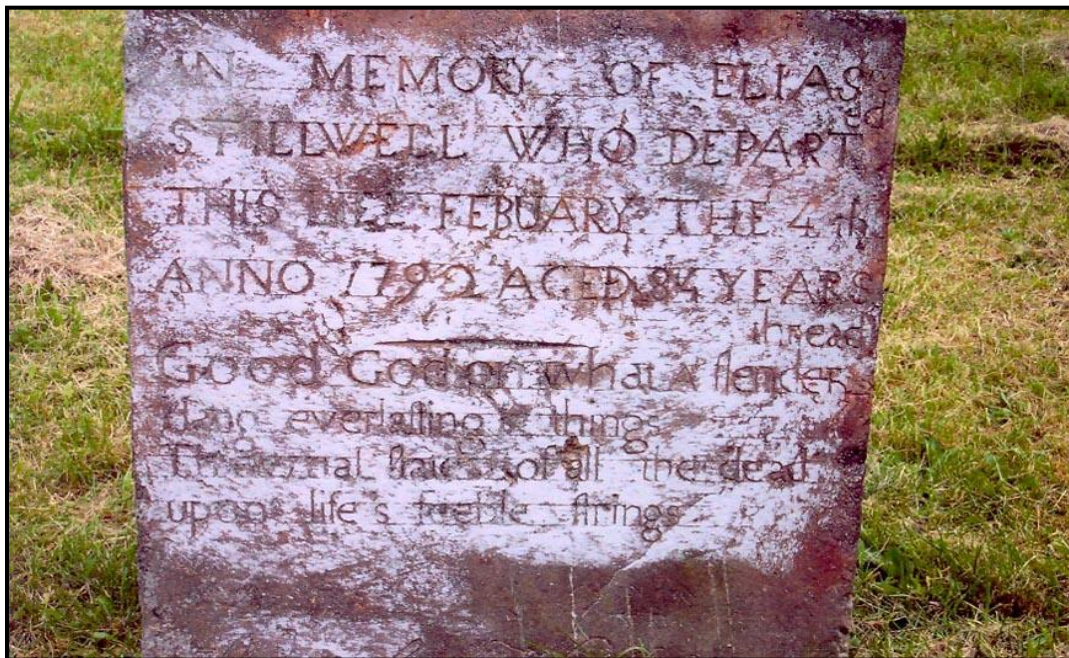 IN MEMORY OF ELIAS
STILLWELL WHO DEPARTed
THIS LIEF FEBUARY THE 4th
ANNO 1792 AGED 84 YEARS
thread
Good God on what A ſlender
Hang everlaſting things
eternal ſtates of all the dead
upon life's feeble ſtrings